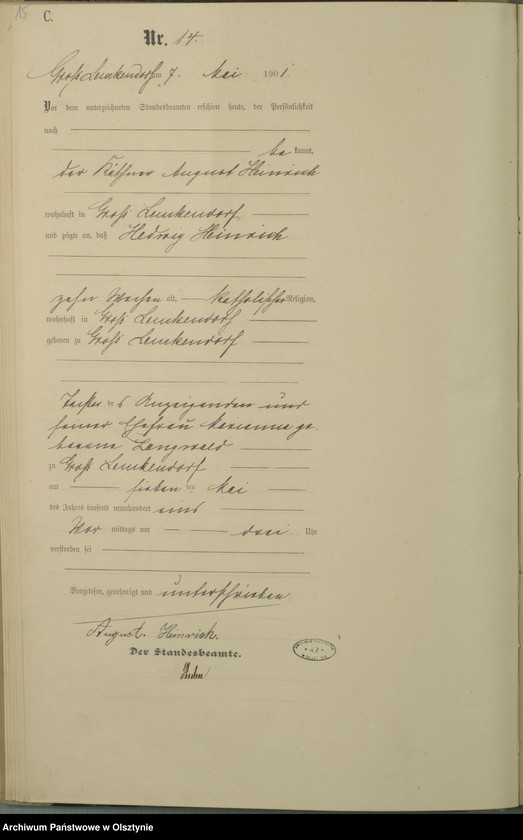 15
C.
Nr. 14.
Groß Lemkendorf am 7. Mai 1901.
Vor dem unterzeichneten Standesbeamten erschien heute, der Persönlichkeit
nach
be kannt,
der Käthner August Heinrich
wohnhaft in Groß Lemkendorf
und zeigte an, daß Hedwig Heinrich
zehn Wochen alt, katholischer Religion,
wohnhaft in Groß Lemkendorf
geboren zu Groß Lemkendorf
Tochter des Anzeigenden und
seiner Ehefrau Marianna ge-
borene Langwald
zu Groß Lemkendorf
am sieben ten Mai
des Jahres tausend neunhundert eins
Vor mittags um drei Uhr
verstorben sei
Vorgelesen, genehmigt und unterschrieben
August Heinrich.
Der Standesbeamte.
Archiwum Państwowe w Olsztynie